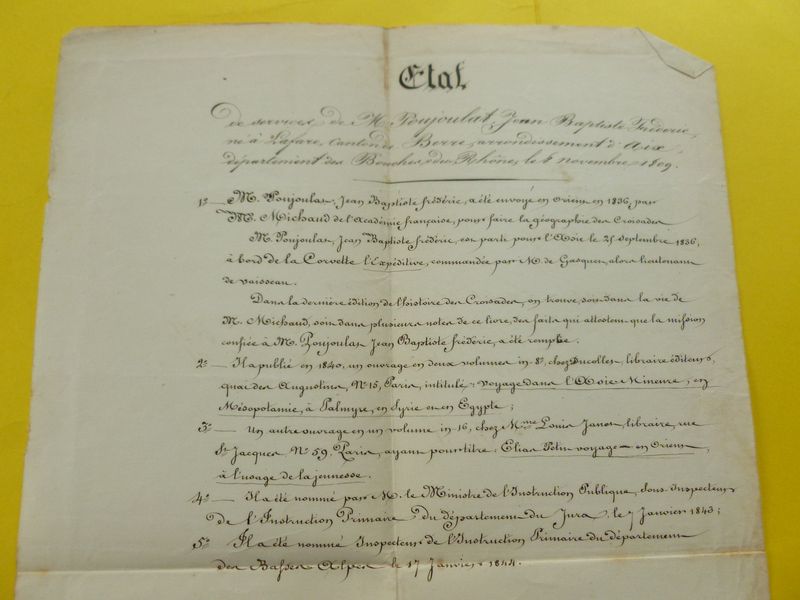 Etat
de services de M. Poujoulat, Jean Baptiste Frédéric,
né à Lafare, Canton de Berre, arrondissement d'Aix,
département des Bouches du Rhône, le 6 novembre 1809.
1º — M. Poujoulat, Jean Baptiste frédéric, a été envoyé en Orient en 1836, par
M. Michaud de l'Académie française, pour faire la géographie des Croisades
M. Poujoulat, Jean Baptiste frédéric, est parti pour l'Asie le 25 septembre 1836,
à bord de la Corvette l'Expéditive, commandée par M. de Gasquet, alors lieutenant
de vaisseau.
Dans la dernière édition de l'histoire des Croisades, on trouve, soit dans la vie de
M. Michaud, soit dans plusieurs notes de ce livre, des faits qui attestent que la mission
confiée à M. Poujoulat Jean Baptiste frédéric, a été remplie.
2º — Il a publié en 1840, un ouvrage en deux volumes in-8º, chez Ducollet, libraire éditeur,
quai des Augustins, Nº 15, Paris, intitulé: voyage dans l'Asie Mineure, en
Mésopotamie, à Palmyre, en Syrie et en Egypte;
3º — Un autre ouvrage en un volume in 16, chez Mme Louis Janet, libraire, rue
St Jacques, Nº 59, Paris, ayant pour titre: Elias Petit voyage en Orient,
à l'usage de la jeunesse.
4º — Il a été nommé par M. le Ministre de l'Instruction Publique, Sous Inspecteur
de l'Instruction Primaire du département du Jura, le 7 Janvier 1843;
5º Il a été nommé Inspecteur de l'Instruction Primaire du département
des Basses Alpes le 17 Janvier 1844.